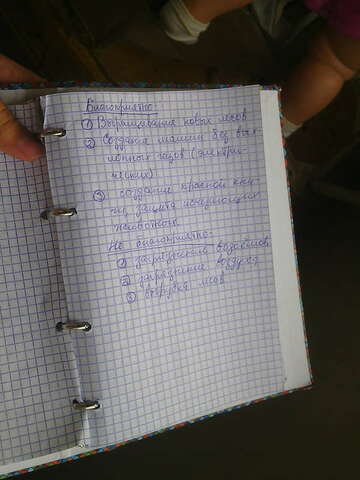 Благоприятно:
① Выращивание новых лесов
② Создание машин без вых-
лопных газов (электри-
ческих)
③ создание красной кни-
ги, защита исчезающих
животных
Не благоприятно:
① загрязнение водоёмов
② загрязнение воздуха
③ вырубка лесов